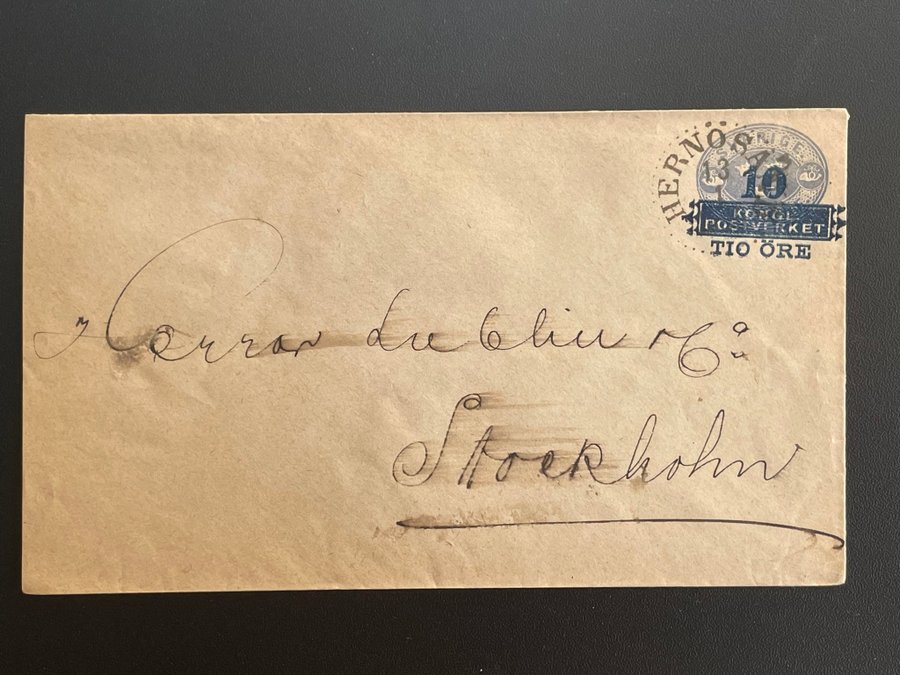 SVERIGE
HERNÖSAND
13
10
KONGL
POSTVERKET
TIO ÖRE
Herrar Lublin & Co
Stockholm